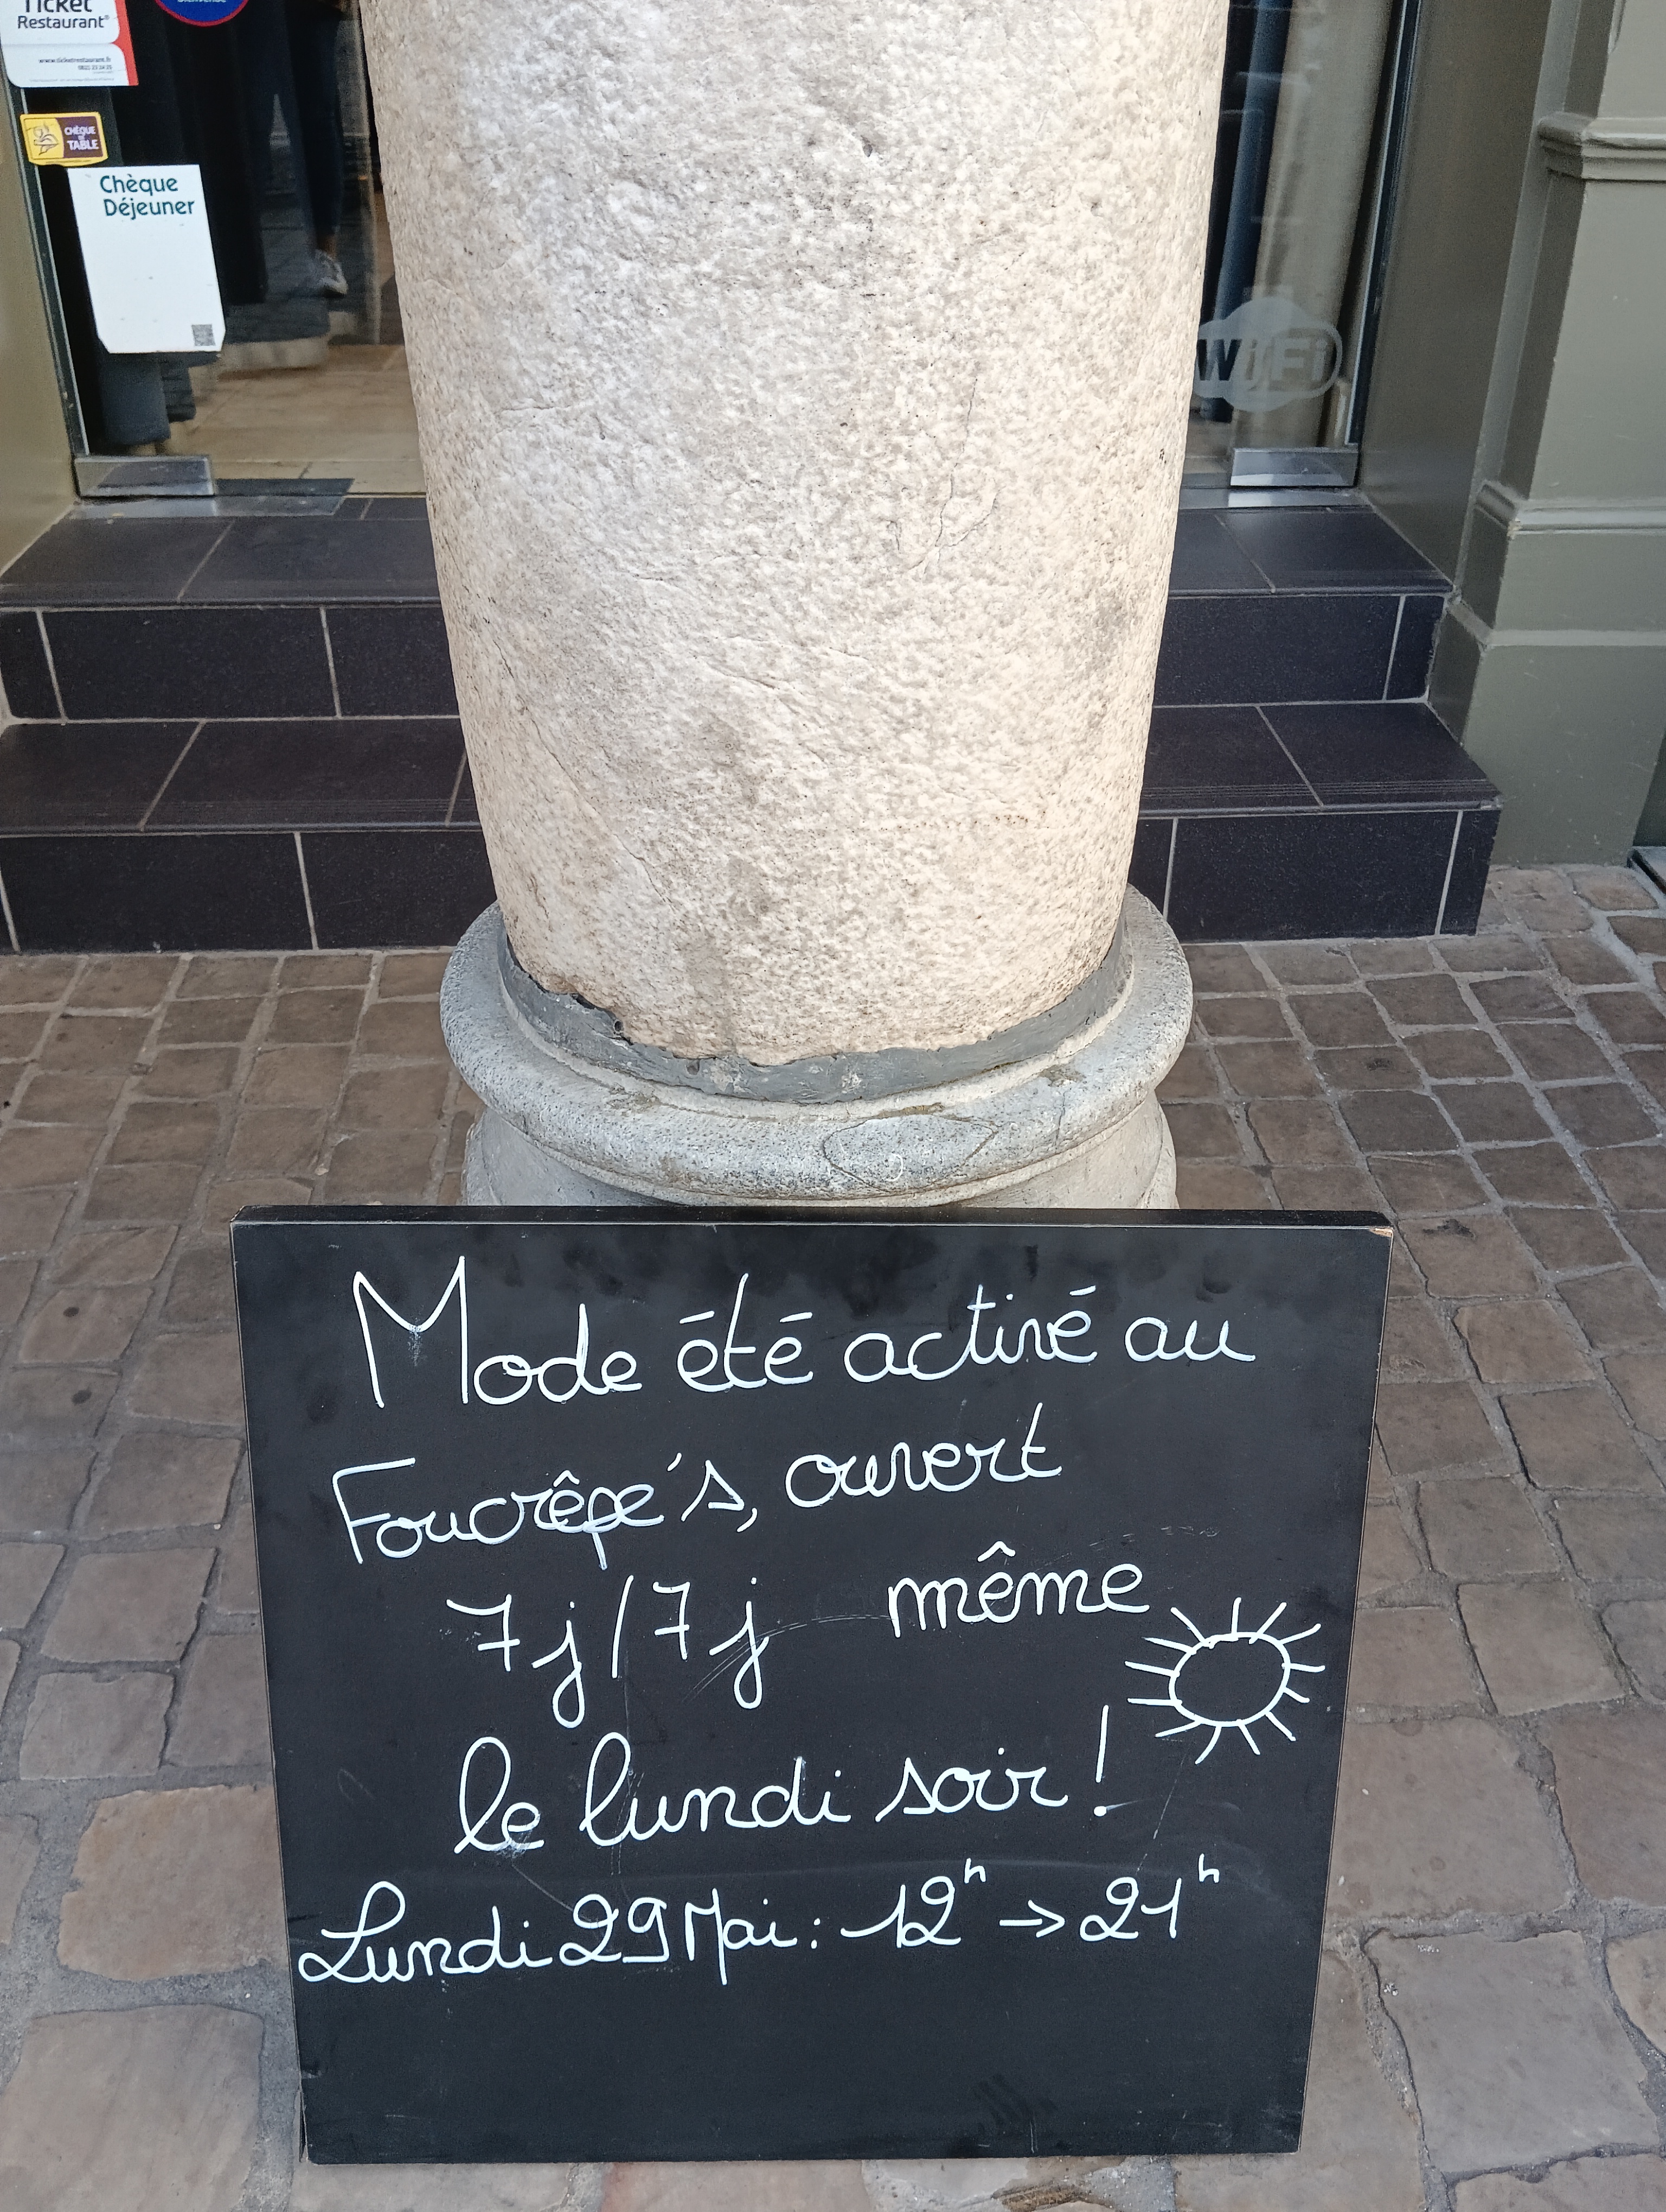 Ticket
Restaurant®
www.ticketrestaurant.fr
CHÈQUE
DE
TABLE
Chèque
Déjeuner
WiFi
Mode été activé au
Foucrêpe's, ouvert
7j/7j même
le lundi soir !
Lundi 29 Mai : 12h → 21h